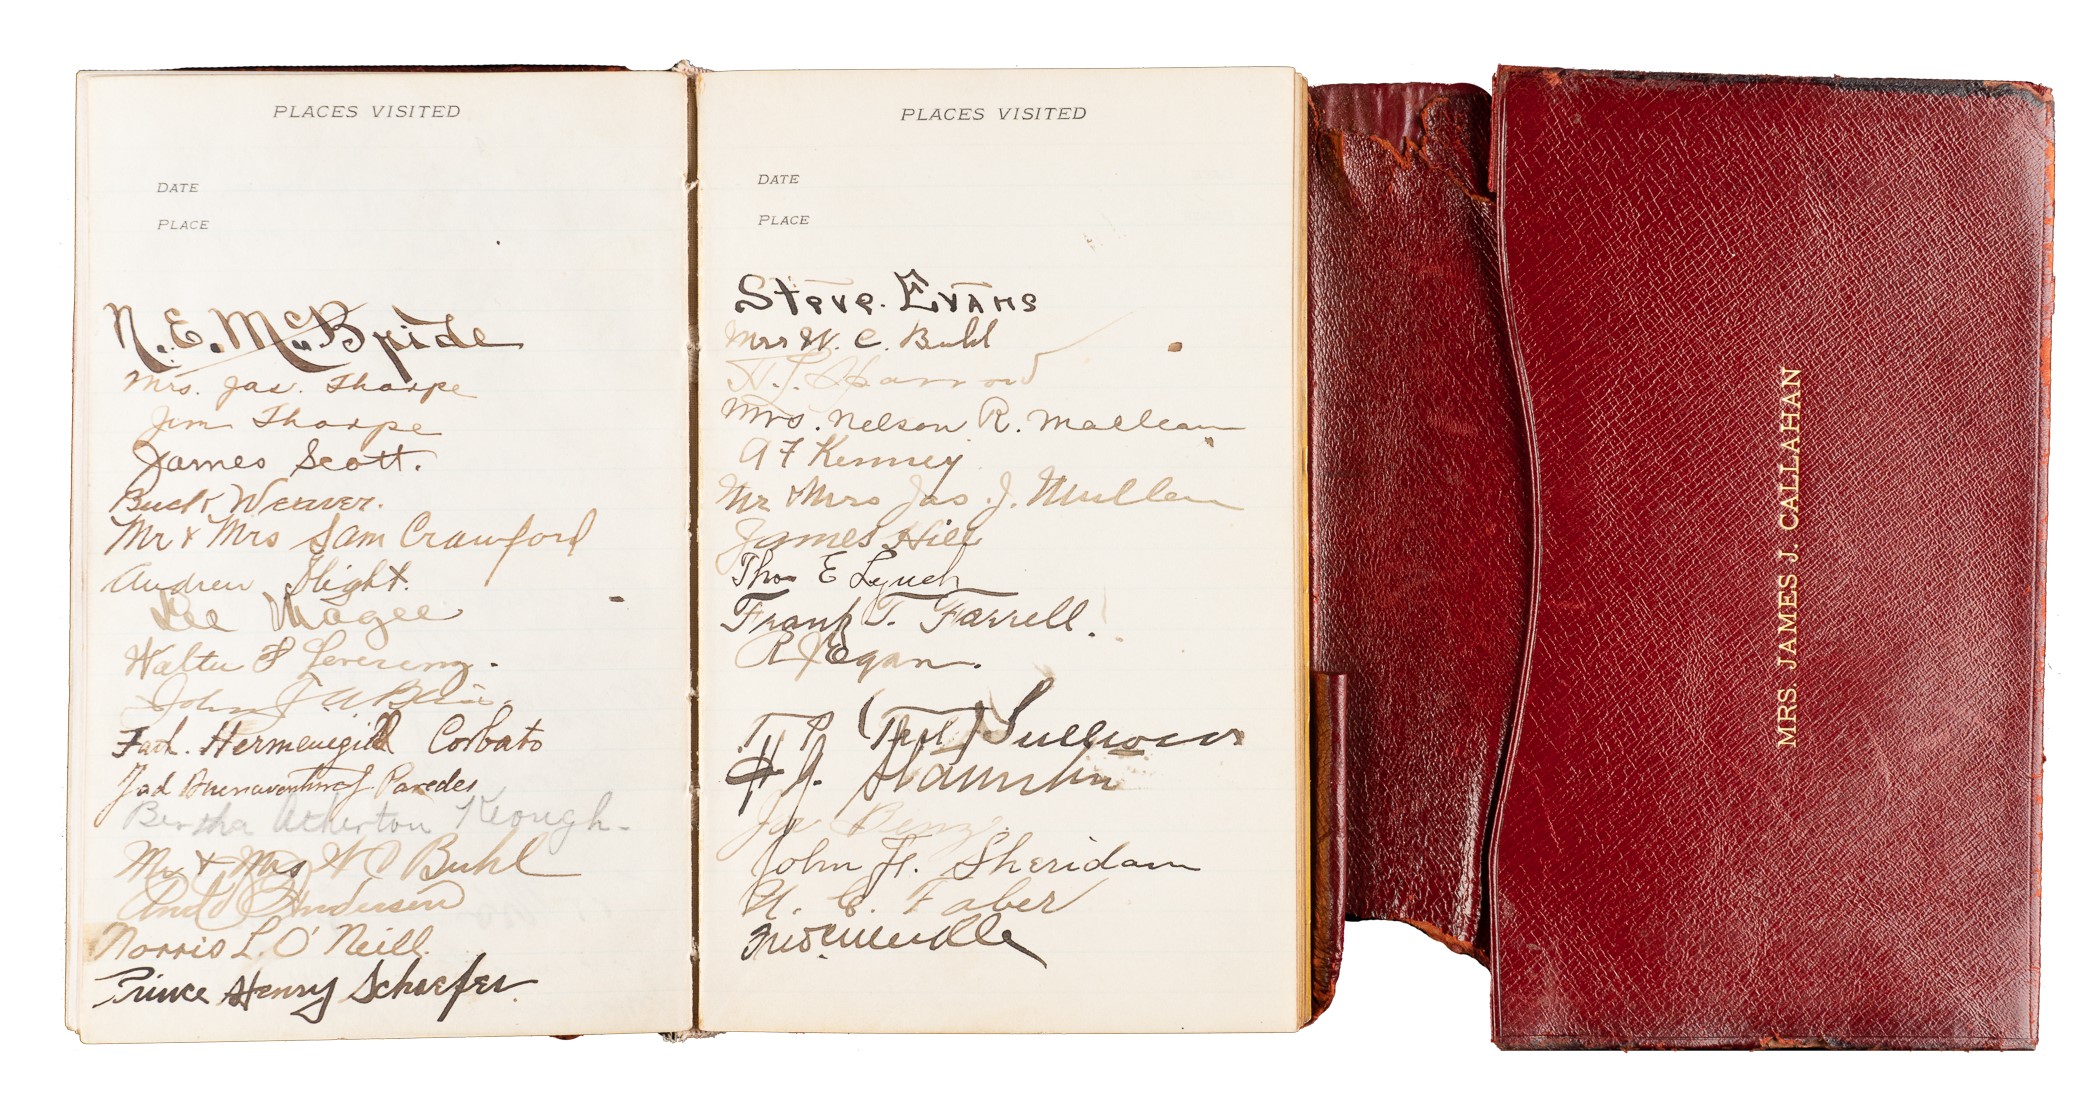 PLACES VISITED
DATE
PLACE
N. E. McBride
Mrs. Jas. Thorpe
Jim Thorpe
James Scott.
Buck Weaver.
Mr & Mrs Sam Crawford
Andrew Slight.
Lee Magee
Walter F Leverenz.
John J
Fath. Hermenegild Corbato
Fad Buenaventura Paredes
Bertha Atherton Keough-
Mr & Mrs W C Buhl
Andersen
Norris L. O'Neill.
Prince Henry Schaefer.
PLACES VISITED
DATE
PLACE
Steve. Evans
Mrs W. C. Buhl
Mrs. Nelson R. Maclean
A F Kenney
Mr & Mrs Jas. J. Mullen
James Hill
Thos E Lynch
Frank T. Farrell.
R J Egan.
T. P. (Ted) Sullivan
Joe Benz.
John F. Sheridan
U. C. Faber
MRS. JAMES J. CALLAHAN